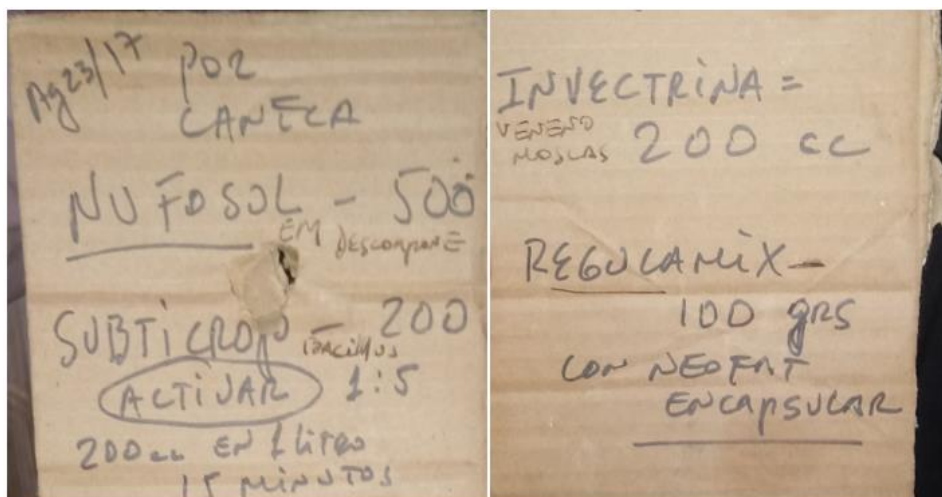 Ag 23/17
POR
CANECA
NUFOSOL - 500
EM DESCOMPONE
SUBTICROP - 200
BACILLUS
ACTIVAR 1:5
200 cc EN 1 LITRO
15 MINUTOS
INVECTRINA =
VENENO
MOSCAS 200 cc
REGULAMIX -
100 grs
CON NEOFAT
ENCAPSULAR